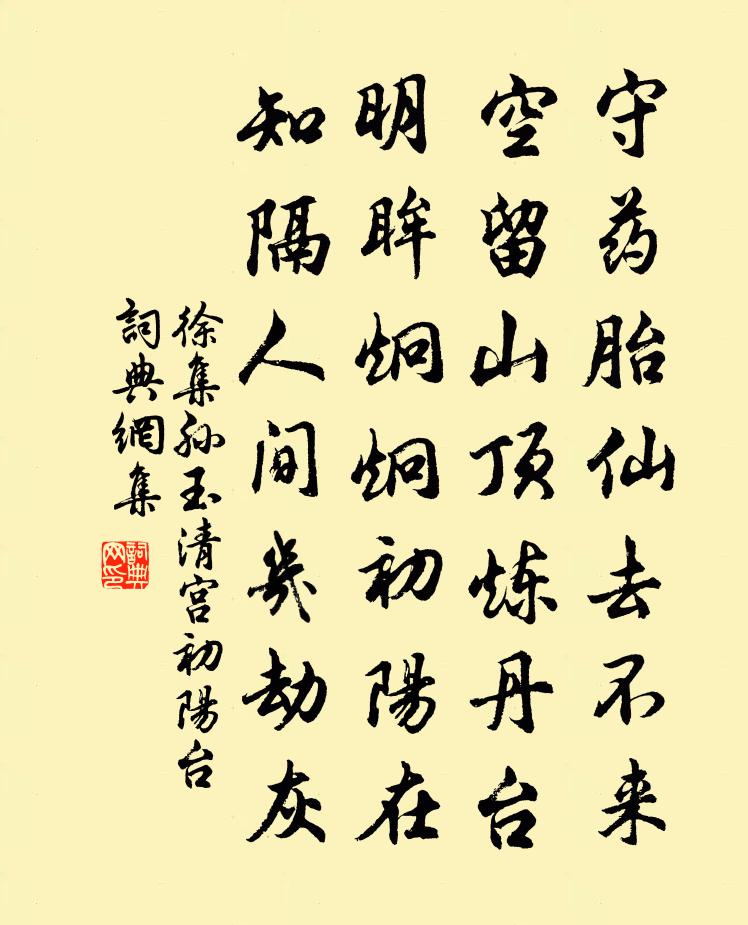 守药胎仙去不来
空留山顶炼丹台
明眸炯炯初陽在
知隔人间几劫灰
徐集孙玉清宫初陽台
詞典網集
詞典網印